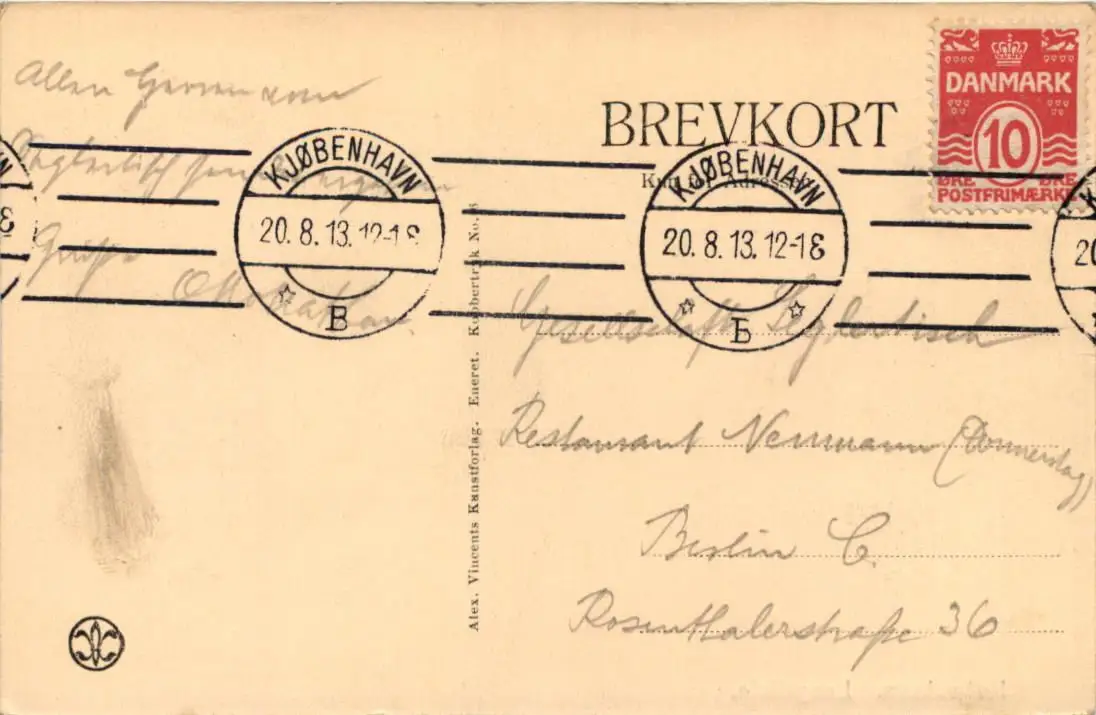 Allen Herren vom
Grüße
Otto
BREVKORT
DANMARK
10
ØRE ØRE
POSTFRIMÆRKE
KJØBENHAVN
20.8.13.12-18
B
KJØBENHAVN
20.8.13.12-18
Alex. Vincents Kunstforlag. Eneret. Kobbertryk No.
Gesellschaft Seglertisch
Restaurant Neumann (Donnerstag)
Berlin C.
Rosenthalerstraße 36